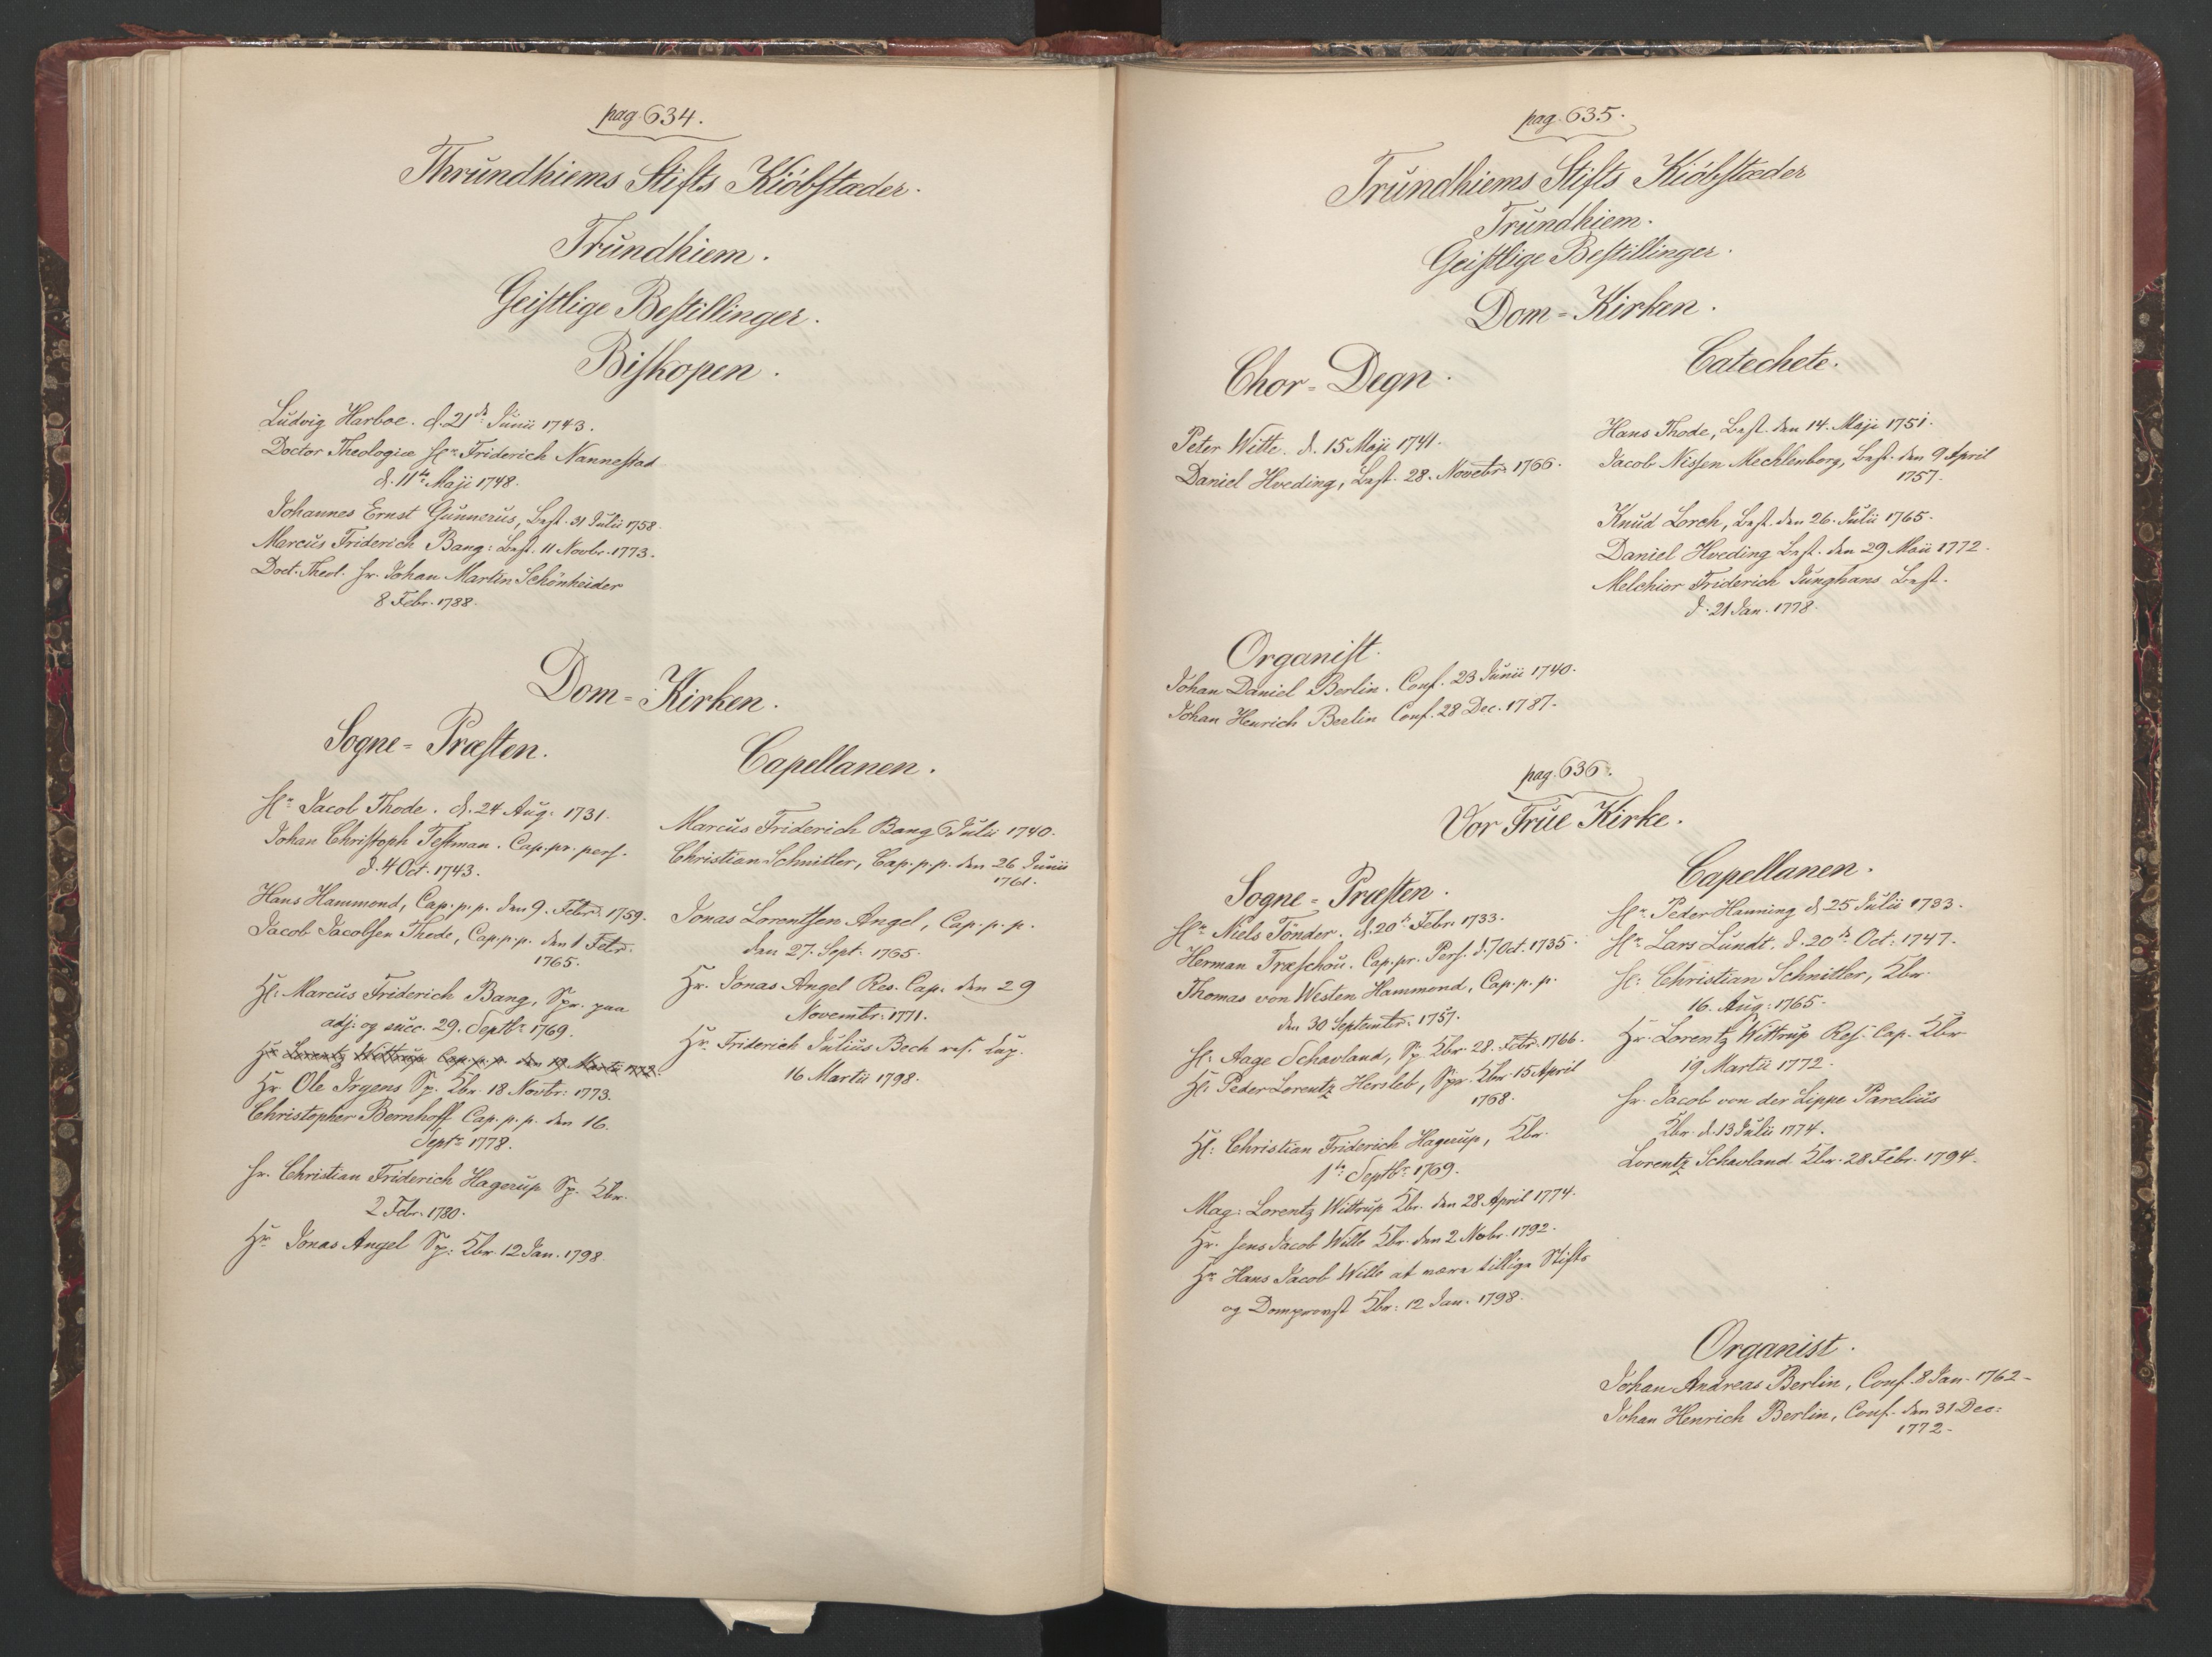 pag. 634.
Thrundhiems Stifts Kiöbstæder.
Trundhiem.
Geistlige Bestillinger.
Biskopen.
Ludvig Harboe. d. 21de Junii 1743.
Doctor Theologiæ Hr Friderich Nannestad
d. 11te Maji 1748.
Johannes Ernst Gunnerus, Best. 31 Julii 1758.
Marcus Friderich Bang: Best. 11 Novbr. 1773.
Doct. Theol. Hr. Johan Martin Schönheider
8 Febr. 1788.
Dom-Kirken.
Sogne-Præsten.
Hr Jacob Thode. d. 24 Aug: 1731.
Johan Christoph Testman. Cap. pr. pers.
d. 4 Oct. 1743.
Hans Hammond, Cap. p. p. den 9. Febr. 1759.
Jacob Jacobsen Thode, Cap. p. p. den 1 Febr.
1765.
Hr: Marcus Friderich Bang, Spr. paa
adj: og succ. 29. Septbr 1769.
Hr Lorentz Wittrup Cap. p. p. den 19 Martii 1772.
Hr Ole Irgens Sp. Kbr. 18 Novbr: 1773.
Christopher Bernhoff Cap. p. p. den 16.
Septr 1778.
Hr. Christian Friderich Hagerup Sp. Kbr.
2 Febr. 1780.
Hr Jonas Angel Sp: Kbr. 12 Jan. 1798.
Capellanen.
Marcus Friderich Bang 6 Julii 1740.
Christian Schnitler, Cap. p. p. den 26 Junii
1761.
Jonas Lorentsen Angel, Cap. p. p.
den 27. Sept. 1765.
Hr. Jonas Angel Res. Cap. den 29
Novembr: 1771.
Hr. Friderich Julius Bech res. Cap.
16 Martii 1798.
pag. 635.
Trundhiems Stifts Kiöbstæder
Trundhiem.
Geistlige Bestillinger.
Dom-Kirken.
Chor-Degn.
Peter Witte. d. 15 Maji 1741.
Daniel Hveding, Best. 28. Novebr. 1766.
Catechete.
Hans Thode, Best. den 14. Maji 1751.
Jacob Nissen Mechlenborg, Best. den 9 April
1757.
Knud Lorch, Best. den 26. Julii 1765.
Daniel Hveding Best. den 29 Maii 1772.
Melchior Friderich Junghans Best.
d. 21 Jan. 1778.
Organist.
Johan Daniel Berlin. Conf. 23 Junii 1740.
Johan Henrich Berlin Conf. 28 Dec. 1787.
pag. 636.
Vor Frue Kirke.
Sogne-Præsten.
Hr Niels Tönder. d. 20de Febr. 1733.
Herman Træschou. Cap. pr. Pers. d. 7 Oct. 1735.
Thomas von Westen Hammond, Cap. p. p.
den 30 Septembr: 1757.
Hr: Aage Schavland, Sp. Kbr. 28. Febr. 1766.
Hr: Peder Lorentz Hersleb, Spr. Kbr. 15 April
1768.
Hr: Christian Friderich Hagerup, Kbr.
1te Septbr 1769.
Mag: Lorentz Wittrup Kbr. den 28 April 1774.
Hr. Jens Jacob Wille Kbr. den 2 Nobr. 1792.
Hr Hans Jacob Wille at være tillige Stifts
og Domprovst Kbr: 12 Jan. 1798.
Capellanen.
Hr. Peder Hanning d. 25 Julii 1733.
Hr Lars Lundt. d. 20de Oct: 1747.
Hr: Christian Schnitler, Kbr.
16. Aug: 1765.
Hr. Lorentz Wittrup Res. Cap. Kbr
19 Martii 1772.
Hr. Jacob von der Lippe Parelius
Kbr. d. 13 Julii 1774.
Lorentz Schavland Kbr. 28 Febr. 1794.
Organist.
Johan Andreas Berlin, Conf. 8 Jan. 1762
Johan Henrich Berlin, Conf. den 31 Dec:
1772